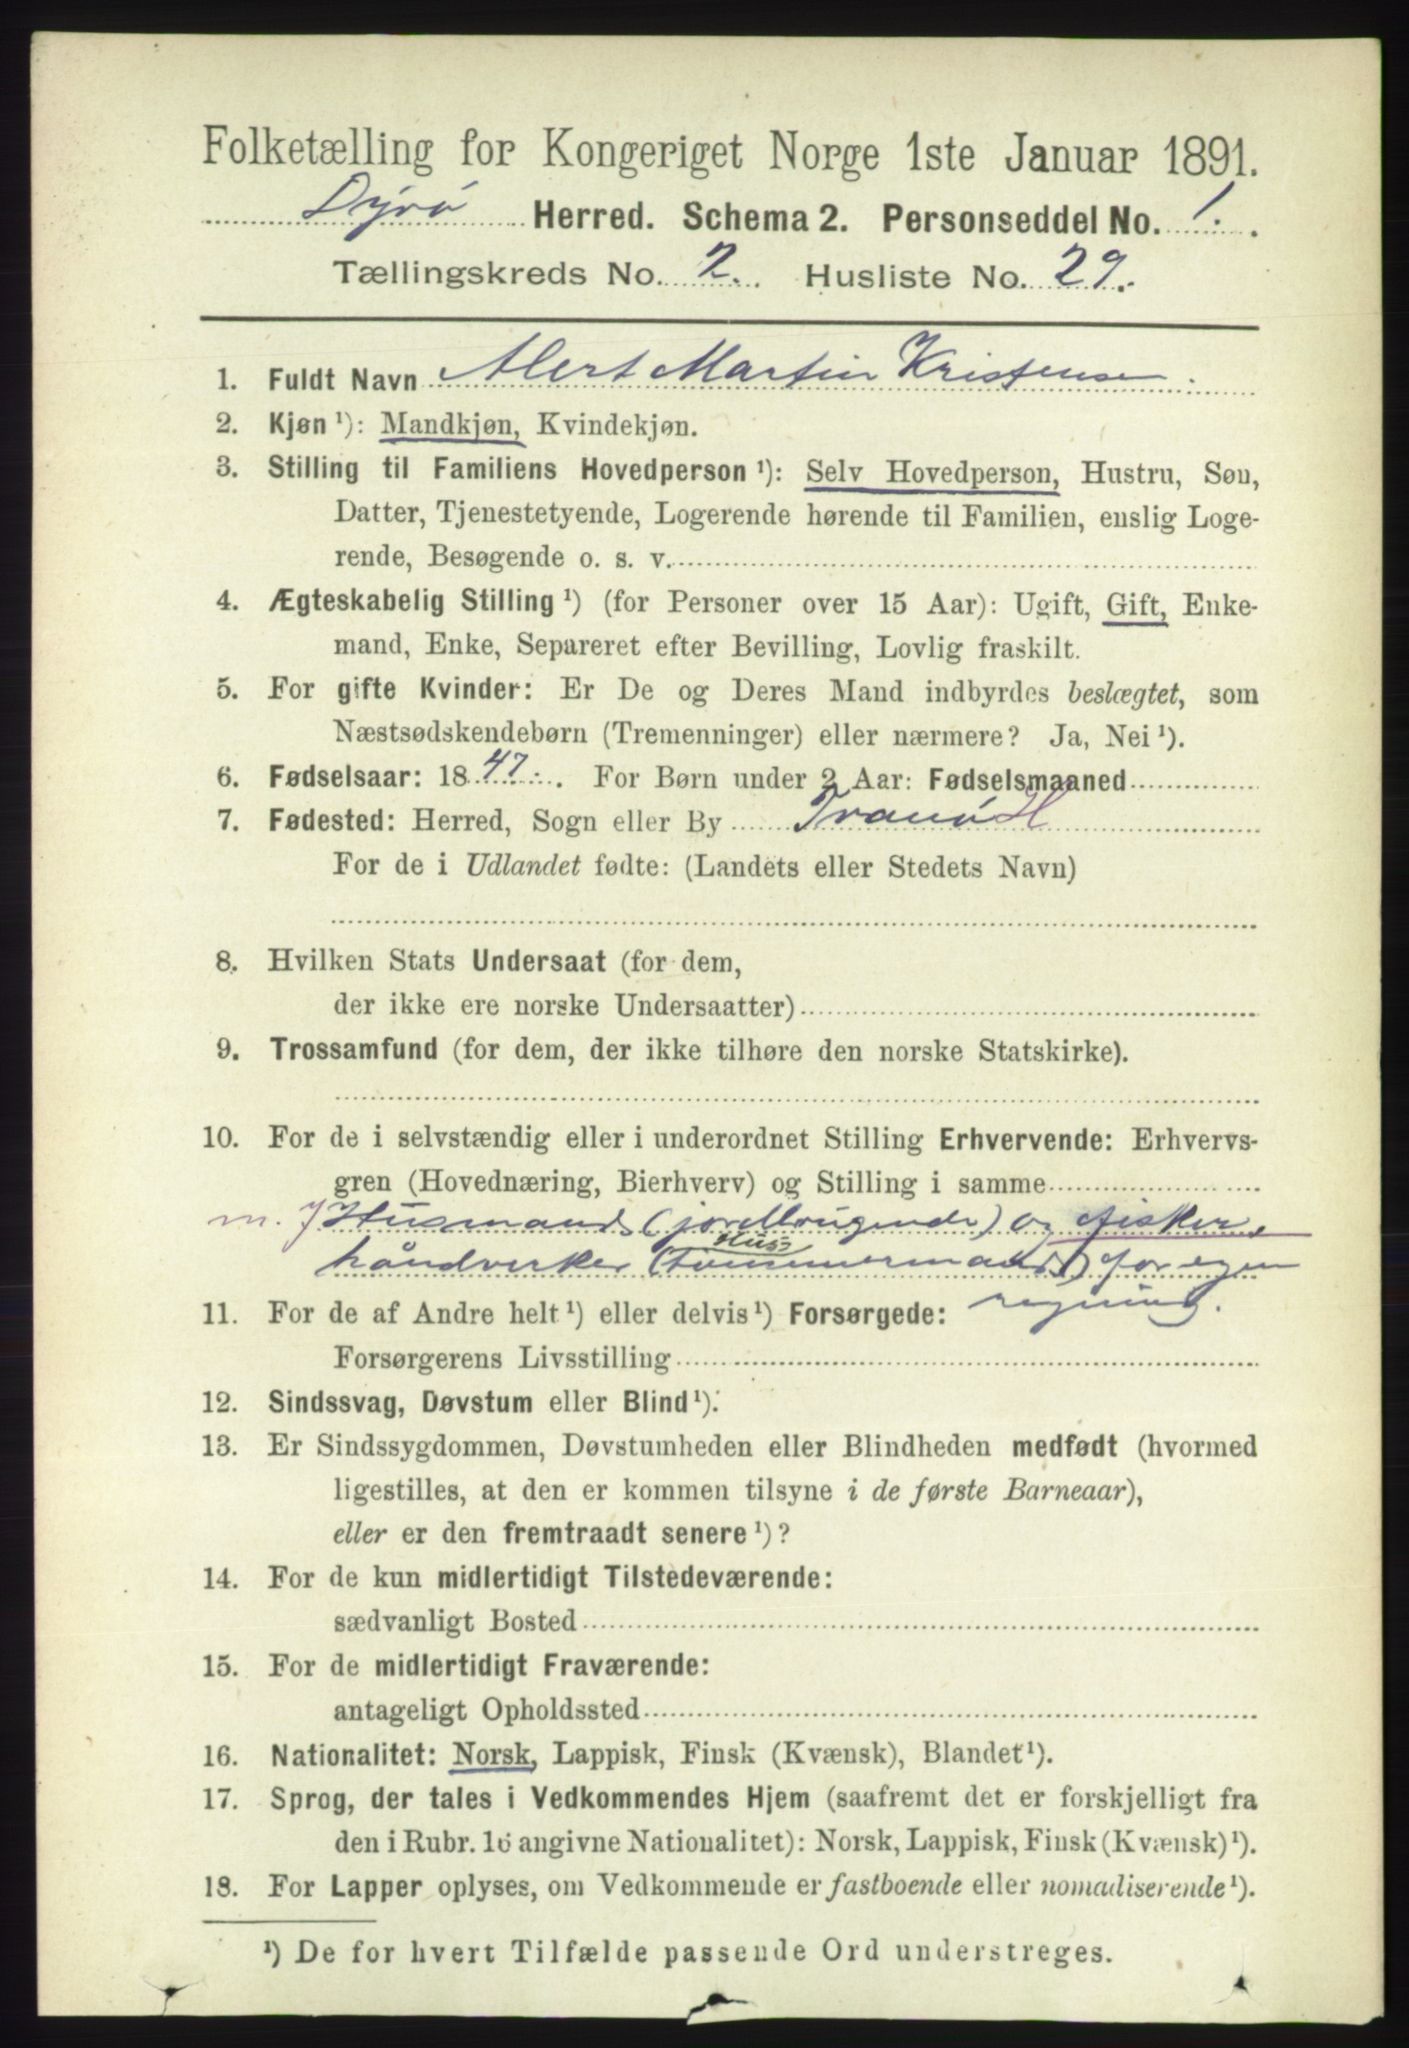 Folketælling for Kongeriget Norge 1ste Januar 1891.
Dyrø Herred. Schema 2. Personseddel No. 1.
Tællingskreds No. 2. Husliste No. 29.
1. Fuldt Navn Alert Martin Kristensen
2. Kjøn ¹): Mandkjøn, Kvindekjøn.
3. Stilling til Familiens Hovedperson ¹): Selv Hovedperson, Hustru, Søn,
Datter, Tjenestetyende, Logerende hørende til Familien, enslig Loge-
rende, Besøgende o. s. v.
4. Ægteskabelig Stilling ¹) (for Personer over 15 Aar): Ugift, Gift, Enke-
mand, Enke, Separeret efter Bevilling, Lovlig fraskilt.
5. For gifte Kvinder: Er De og Deres Mand indbyrdes beslægtet, som
Næstsødskendebørn (Tremenninger) eller nærmere? Ja, Nei ¹).
6. Fødselsaar: 1847. For Børn under 2 Aar: Fødselsmaaned
7. Fødested: Herred, Sogn eller By Tranø H
For de i Udlandet fødte: (Landets eller Stedets Navn)
8. Hvilken Stats Undersaat (for dem,
der ikke ere norske Undersaatter)
9. Trossamfund (for dem, der ikke tilhøre den norske Statskirke).
10. For de i selvstændig eller i underordnet Stilling Erhvervende: Erhvervs-
gren (Hovednæring, Bierhverv) og Stilling i samme
m. J Husmand (jordbrugende) og fisker,
Hus-
håndverker (tømmermand) for egen
regning.
11. For de af Andre helt ¹) eller delvis ¹) Forsørgede:
Forsørgerens Livsstilling
12. Sindssvag, Døvstum eller Blind ¹).
13. Er Sindssygdommen, Døvstumheden eller Blindheden medfødt (hvormed
ligestilles, at den er kommen tilsyne i de første Barneaar),
eller er den fremtraadt senere ¹)?
14. For de kun midlertidigt Tilstedeværende:
sædvanligt Bosted
15. For de midlertidigt Fraværende:
antageligt Opholdssted
16. Nationalitet: Norsk, Lappisk, Finsk (Kvænsk), Blandet ¹).
17. Sprog, der tales i Vedkommendes Hjem (saafremt det er forskjelligt fra
den i Rubr. 16 angivne Nationalitet): Norsk, Lappisk, Finsk (Kvænsk) ¹).
18. For Lapper oplyses, om Vedkommende er fastboende eller nomadiserende ¹).
¹) De for hvert Tilfælde passende Ord understreges.